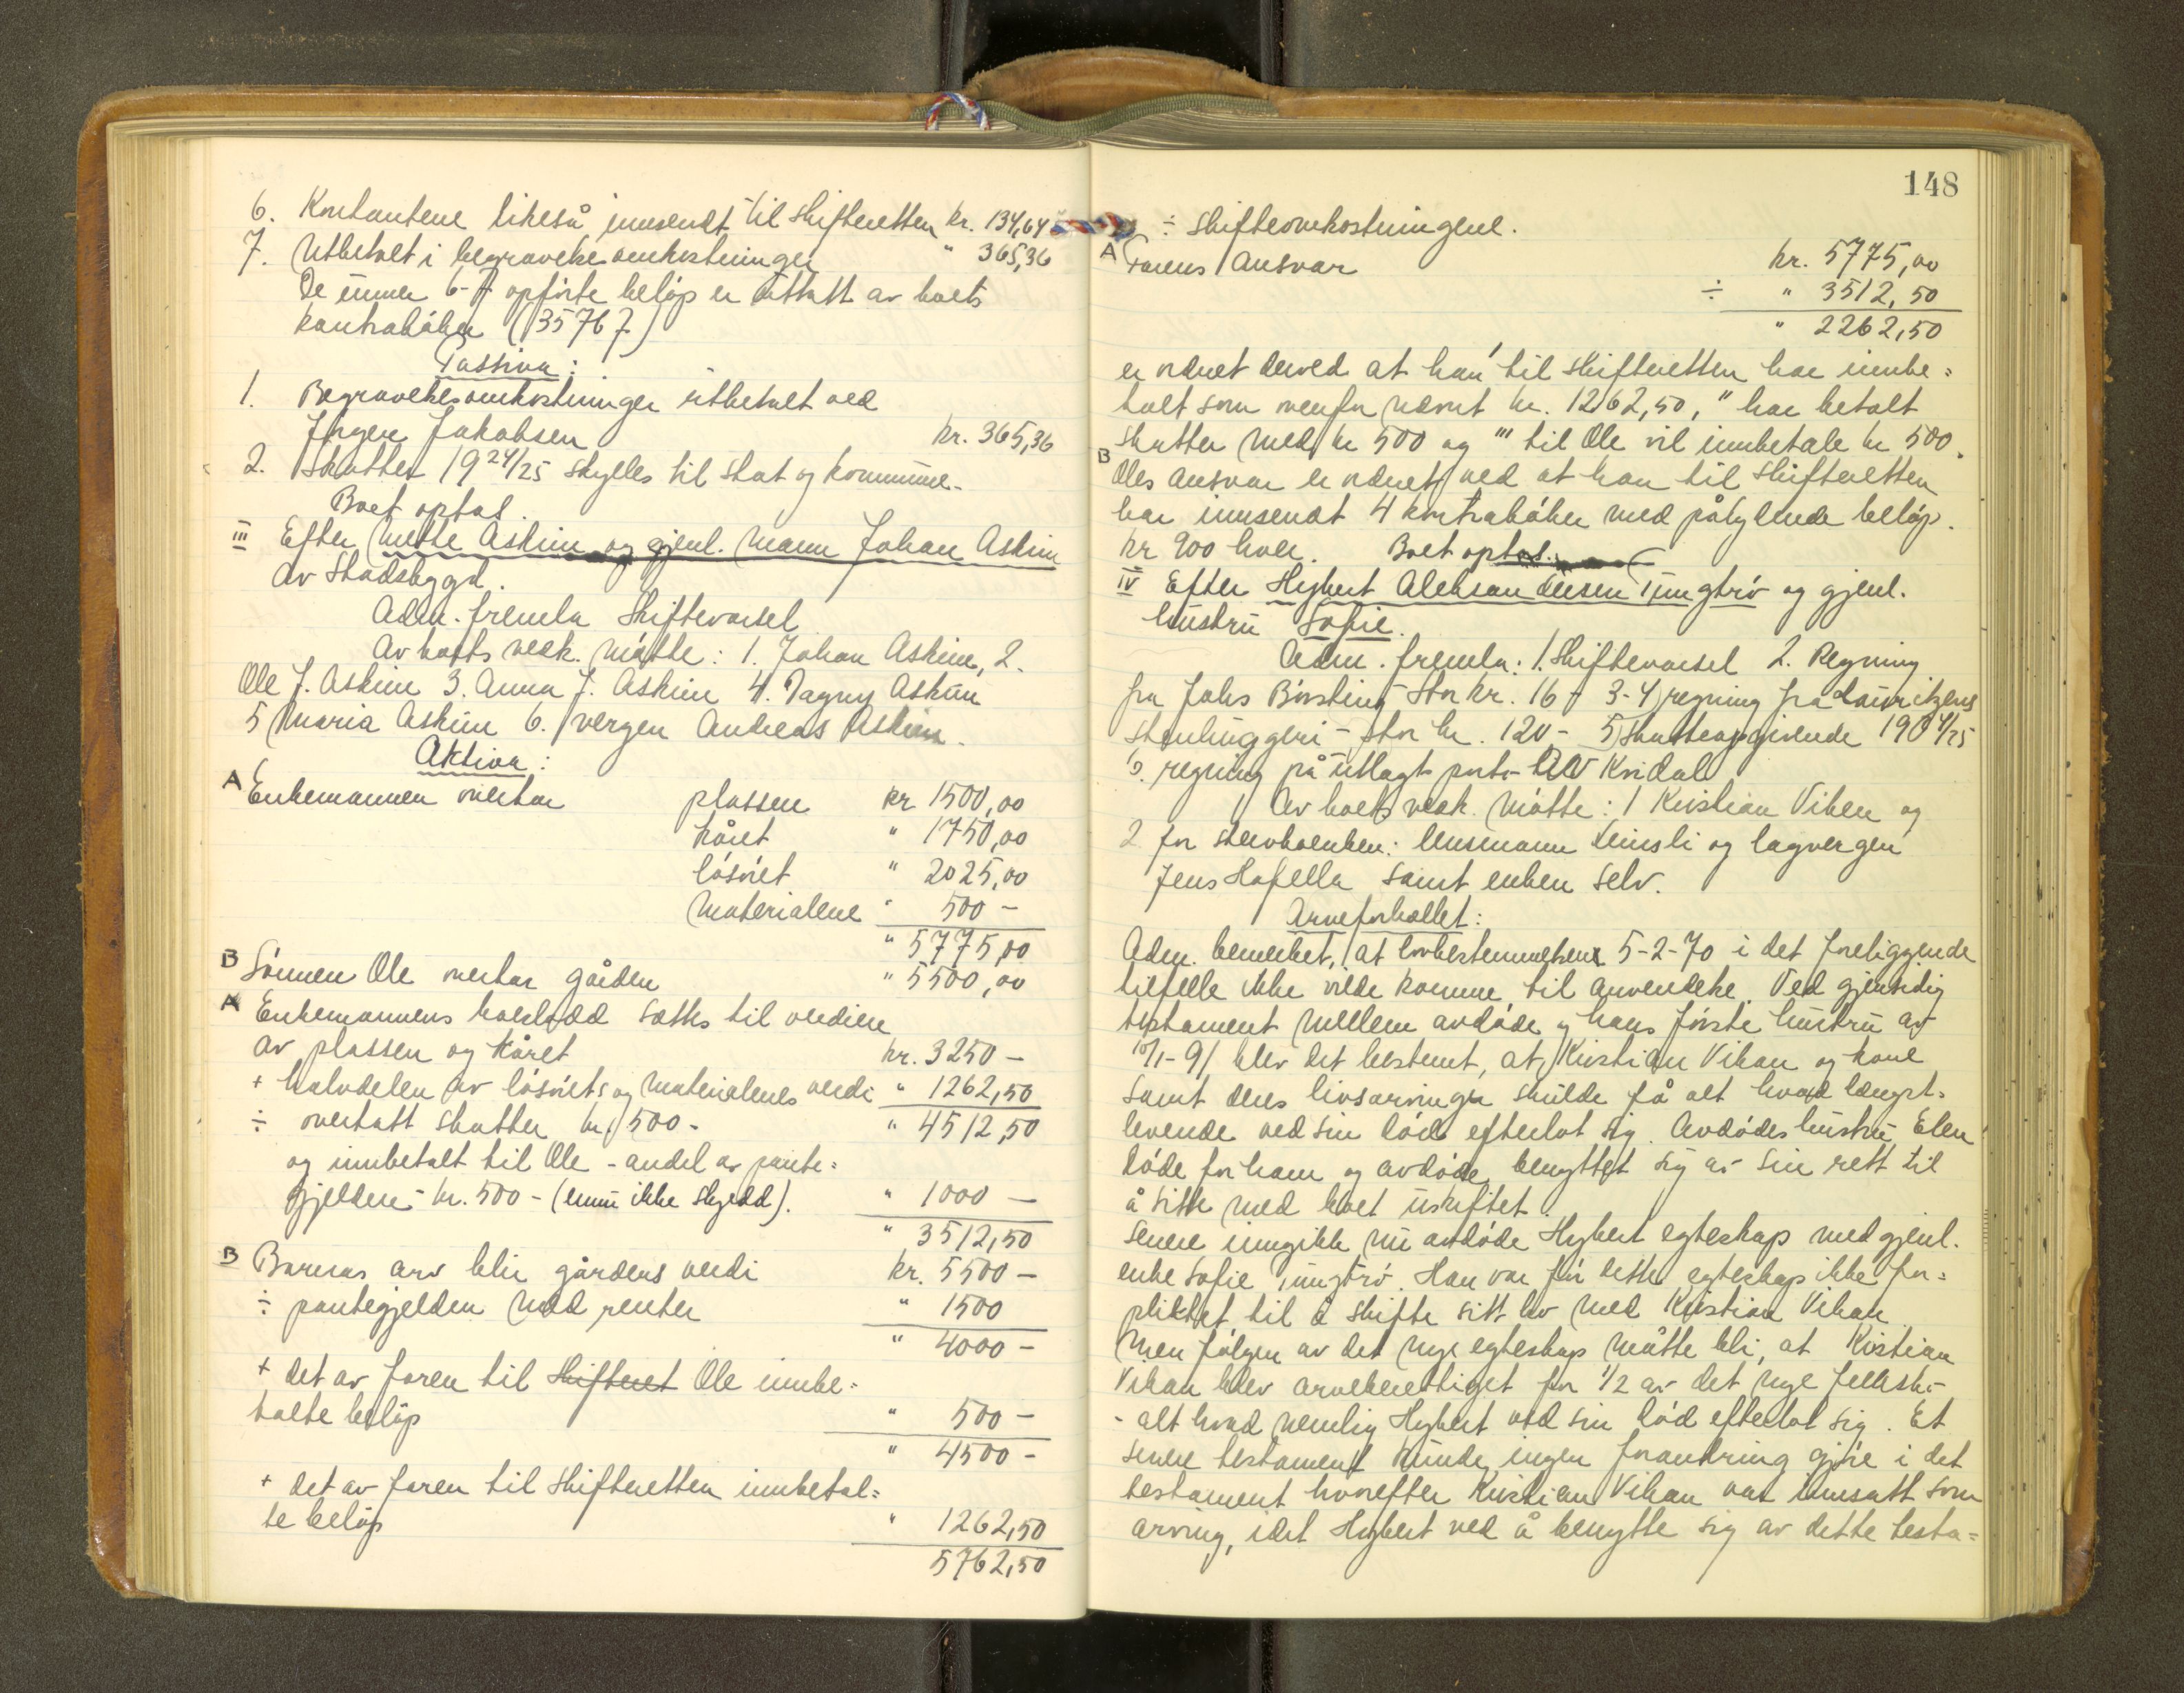 6. Kontantene likeså innsendt til skifteretten kr. 134,64
7. Utbetalt i begravelsesomkostninger " 365,36
De under 6-7 opførte beløp er uttatt av boets
kontrabøker (35767)
Passiva:
1. Begravelsesomkostninger utbetalt ved
Jørgen Jakobsen kr. 365,36
2. Skatter 19 24/25 skylles til stat og kommune-
Boet optas.
III Efter Mette Askim og gjenl. mann Johan Askim
av Stadsbygd.
Adm. fremla skiftevarsel
Av boets vedk. møtte: 1. Johan Askim, 2.
Ole J. Askim 3. Anna J. Askim 4. Dagny Askim
5 Maria Askim 6. vergen Andreas Askim.
Aktiva:
A Enkemannen overtar plassen kr 1500,00
kåret " 1750,00
løsøret " 2025,00
Materialene " 500 -
" 5775,00
B Sønnen Ole overtar gården " 5500,00
A Enkemannens boeslodd sættes til verdiene
av plassen og kåret kr. 3250 -
+ halvdelen av løsørets og materialenes verdi " 1262,50
÷ overtatt skatter kr. 500 - " 4512,50
og innbetalt til Ole - andel av pante=
gjelden - kr. 500 - (ennu ikke skjedd). " 1000 -
" 3512,50
B Barnas arv blir gårdens verdi kr. 5500 -
÷ pantegjelden med renter " 1500
" 4000 -
+ det av faren til Skifteret Ole innbe=
talte beløp " 500 -
" 4500 -
+ det av faren til skifteretten innbetal=
te beløp " 1262,50
5762,50
148
÷ skifteomkostningene.
A Farens ansvar kr. 5775,00
÷ " 3512,50
" 2262,50
er ordnet derved at han ' til skifteretten har innbe=
talt som ovenfor nævnt kr. 1262,50, " har betalt
skatter med kr 500 og ''' til Ole vil innbetale kr 500.
B Oles ansvar er ordnet ved at han til skifteretten
har innsendt 4 kontrabøker med pålydende beløp.
kr 900 hver. Boet optas.
IV Efter Hybert Aleksandersen Tungtrø og gjenl.
hustru Sofie.
Adm. fremla: 1. Skiftevarsel 2. Regning
fra Johs Børsting stor kr. 16 - 3-4 regning fra Lauritzens
stenhuggeri - stor kr. 120 - 5 Skatteopgivende 1924/25
6. regning på utlagt porto
Av boets vedk. møtte: 1 Kristian Vikan og
2 for stervboenken: lensmann og lagvergen
Jens Hofella samt enken selv.
Arveforholdet:
Adm. bemerket, at lovbestemmelsene 5-2-70 i det foreliggende
tilfelle ikke vilde komme til anvendelse. Ved gjensidig
testament mellem avdøde og hans første hustru av
10/1-91 blev det bestemt, at Kristian Vikan og kone
samt deres livsarvinger skulde få alt hvad længst=
levende ved sin død efterlot sig. Avdødes hustru Elen
døde før ham og avdøde benyttet sig av sin rett til
å sitte med boet uskiftet.
Senere inngikk nu avdøde Hybert egteskap med gjenl.
enke Sofie Tungtrø. Han var før dette egteskap ikke for=
pliktet til å skifte sitt bo med Kristian Vikan.
Men følgen av det nye egteskap måtte bli, at Kristian
Vikan blev arveberettiget for 1/2 av det nye fellesbo-
- alt hvad nemlig Hybert ved sin død efterlot sig. Et
senere testament kunde ingen forandring gjøre i det
testament hvorefter Kristian Vikan var innsatt som
arving, idet Hybert ved å benytte sig av dette testa=